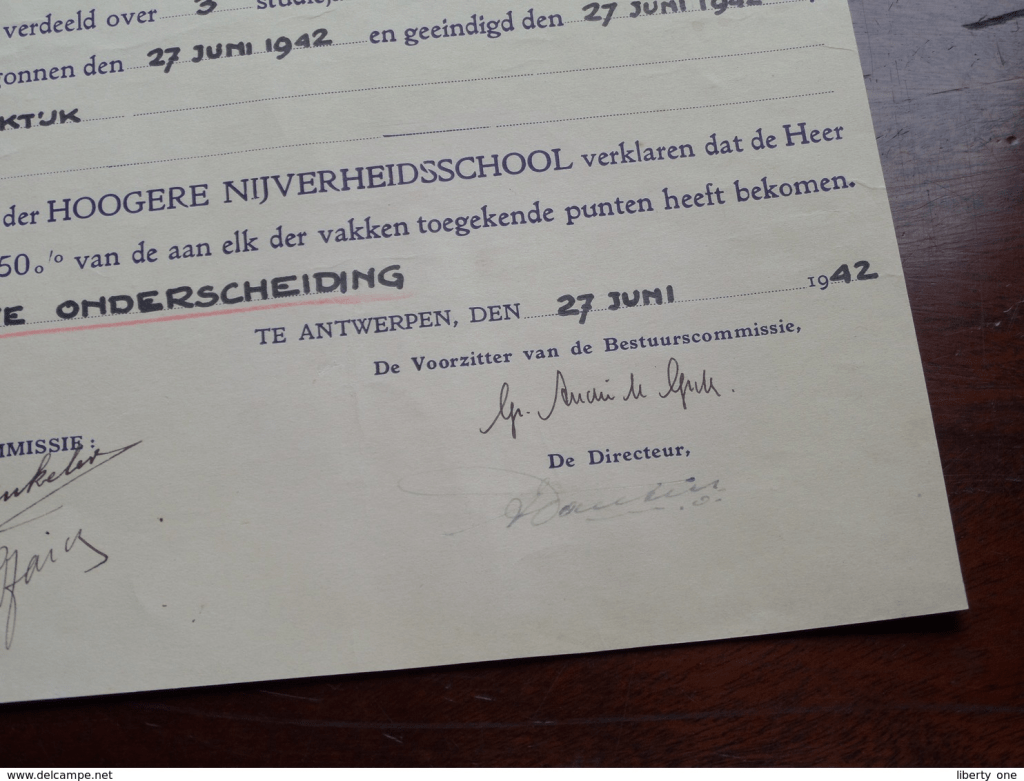 verdeeld over 3
onnen den 27 JUNI 1942 en geeindigd den 27 JUNI 1942
KTIJK
der HOOGERE NIJVERHEIDSSCHOOL verklaren dat de Heer
50 % van de aan elk der vakken toegekende punten heeft bekomen.
E ONDERSCHEIDING
TE ANTWERPEN, DEN 27 JUNI 1942
De Voorzitter van de Bestuurscommissie,
MMISSIE :
De Directeur,
www.delcampe.net
liberty_one